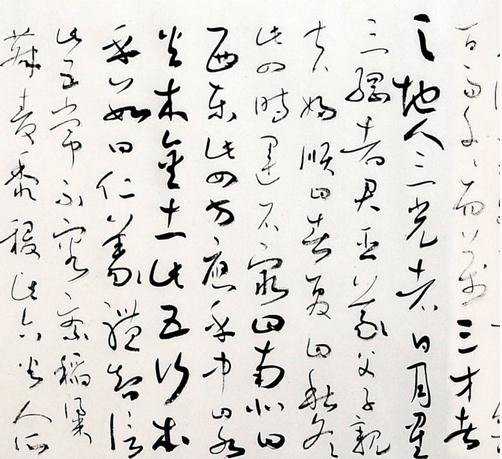 百而千千而萬三才者
天地人三光者日月星
三綱者君臣義父子親
夫婦順曰春夏曰秋冬
此四時運不窮曰南北曰
西東此四方應乎中曰水
火木金土此五行本
乎數曰仁義禮智信
此五常不容紊稻粱
菽麥黍稷此六穀人所